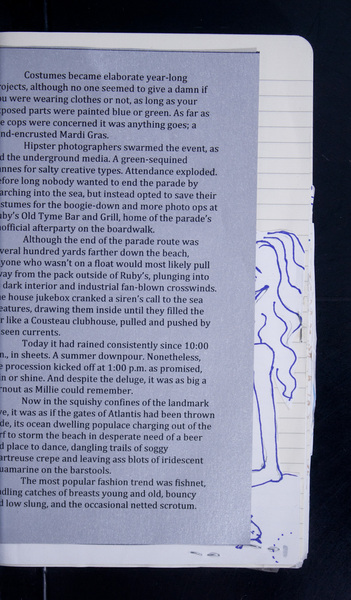 Costumes became elaborate year-long
rojects, although no one seemed to give a damn if
ou were wearing clothes or not, as long as your
xposed parts were painted blue or green. As far as
e cops were concerned it was anything goes; a
nd-encrusted Mardi Gras.
Hipster photographers swarmed the event, as
d the underground media. A green-sequined
annes for salty creative types. Attendance exploded.
efore long nobody wanted to end the parade by
arching into the sea, but instead opted to save their
stumes for the boogie-down and more photo ops at
uby's Old Tyme Bar and Grill, home of the parade's
nofficial afterparty on the boardwalk.
Although the end of the parade route was
veral hundred yards farther down the beach,
yone who wasn't on a float would most likely pull
way from the pack outside of Ruby's, plunging into
dark interior and industrial fan-blown crosswinds.
he house jukebox cranked a siren's call to the sea
eatures, drawing them inside until they filled the
r like a Cousteau clubhouse, pulled and pushed by
seen currents.
Today it had rained consistently since 10:00
m., in sheets. A summer downpour. Nonetheless,
e procession kicked off at 1:00 p.m. as promised,
in or shine. And despite the deluge, it was as big a
rnout as Millie could remember.
Now in the squishy confines of the landmark
ve, it was as if the gates of Atlantis had been thrown
de, its ocean dwelling populace charging out of the
rf to storm the beach in desperate need of a beer
d place to dance, dangling trails of soggy
artreuse crepe and leaving ass blots of iridescent
uamarine on the barstools.
The most popular fashion trend was fishnet,
dling catches of breasts young and old, bouncy
d low slung, and the occasional netted scrotum.